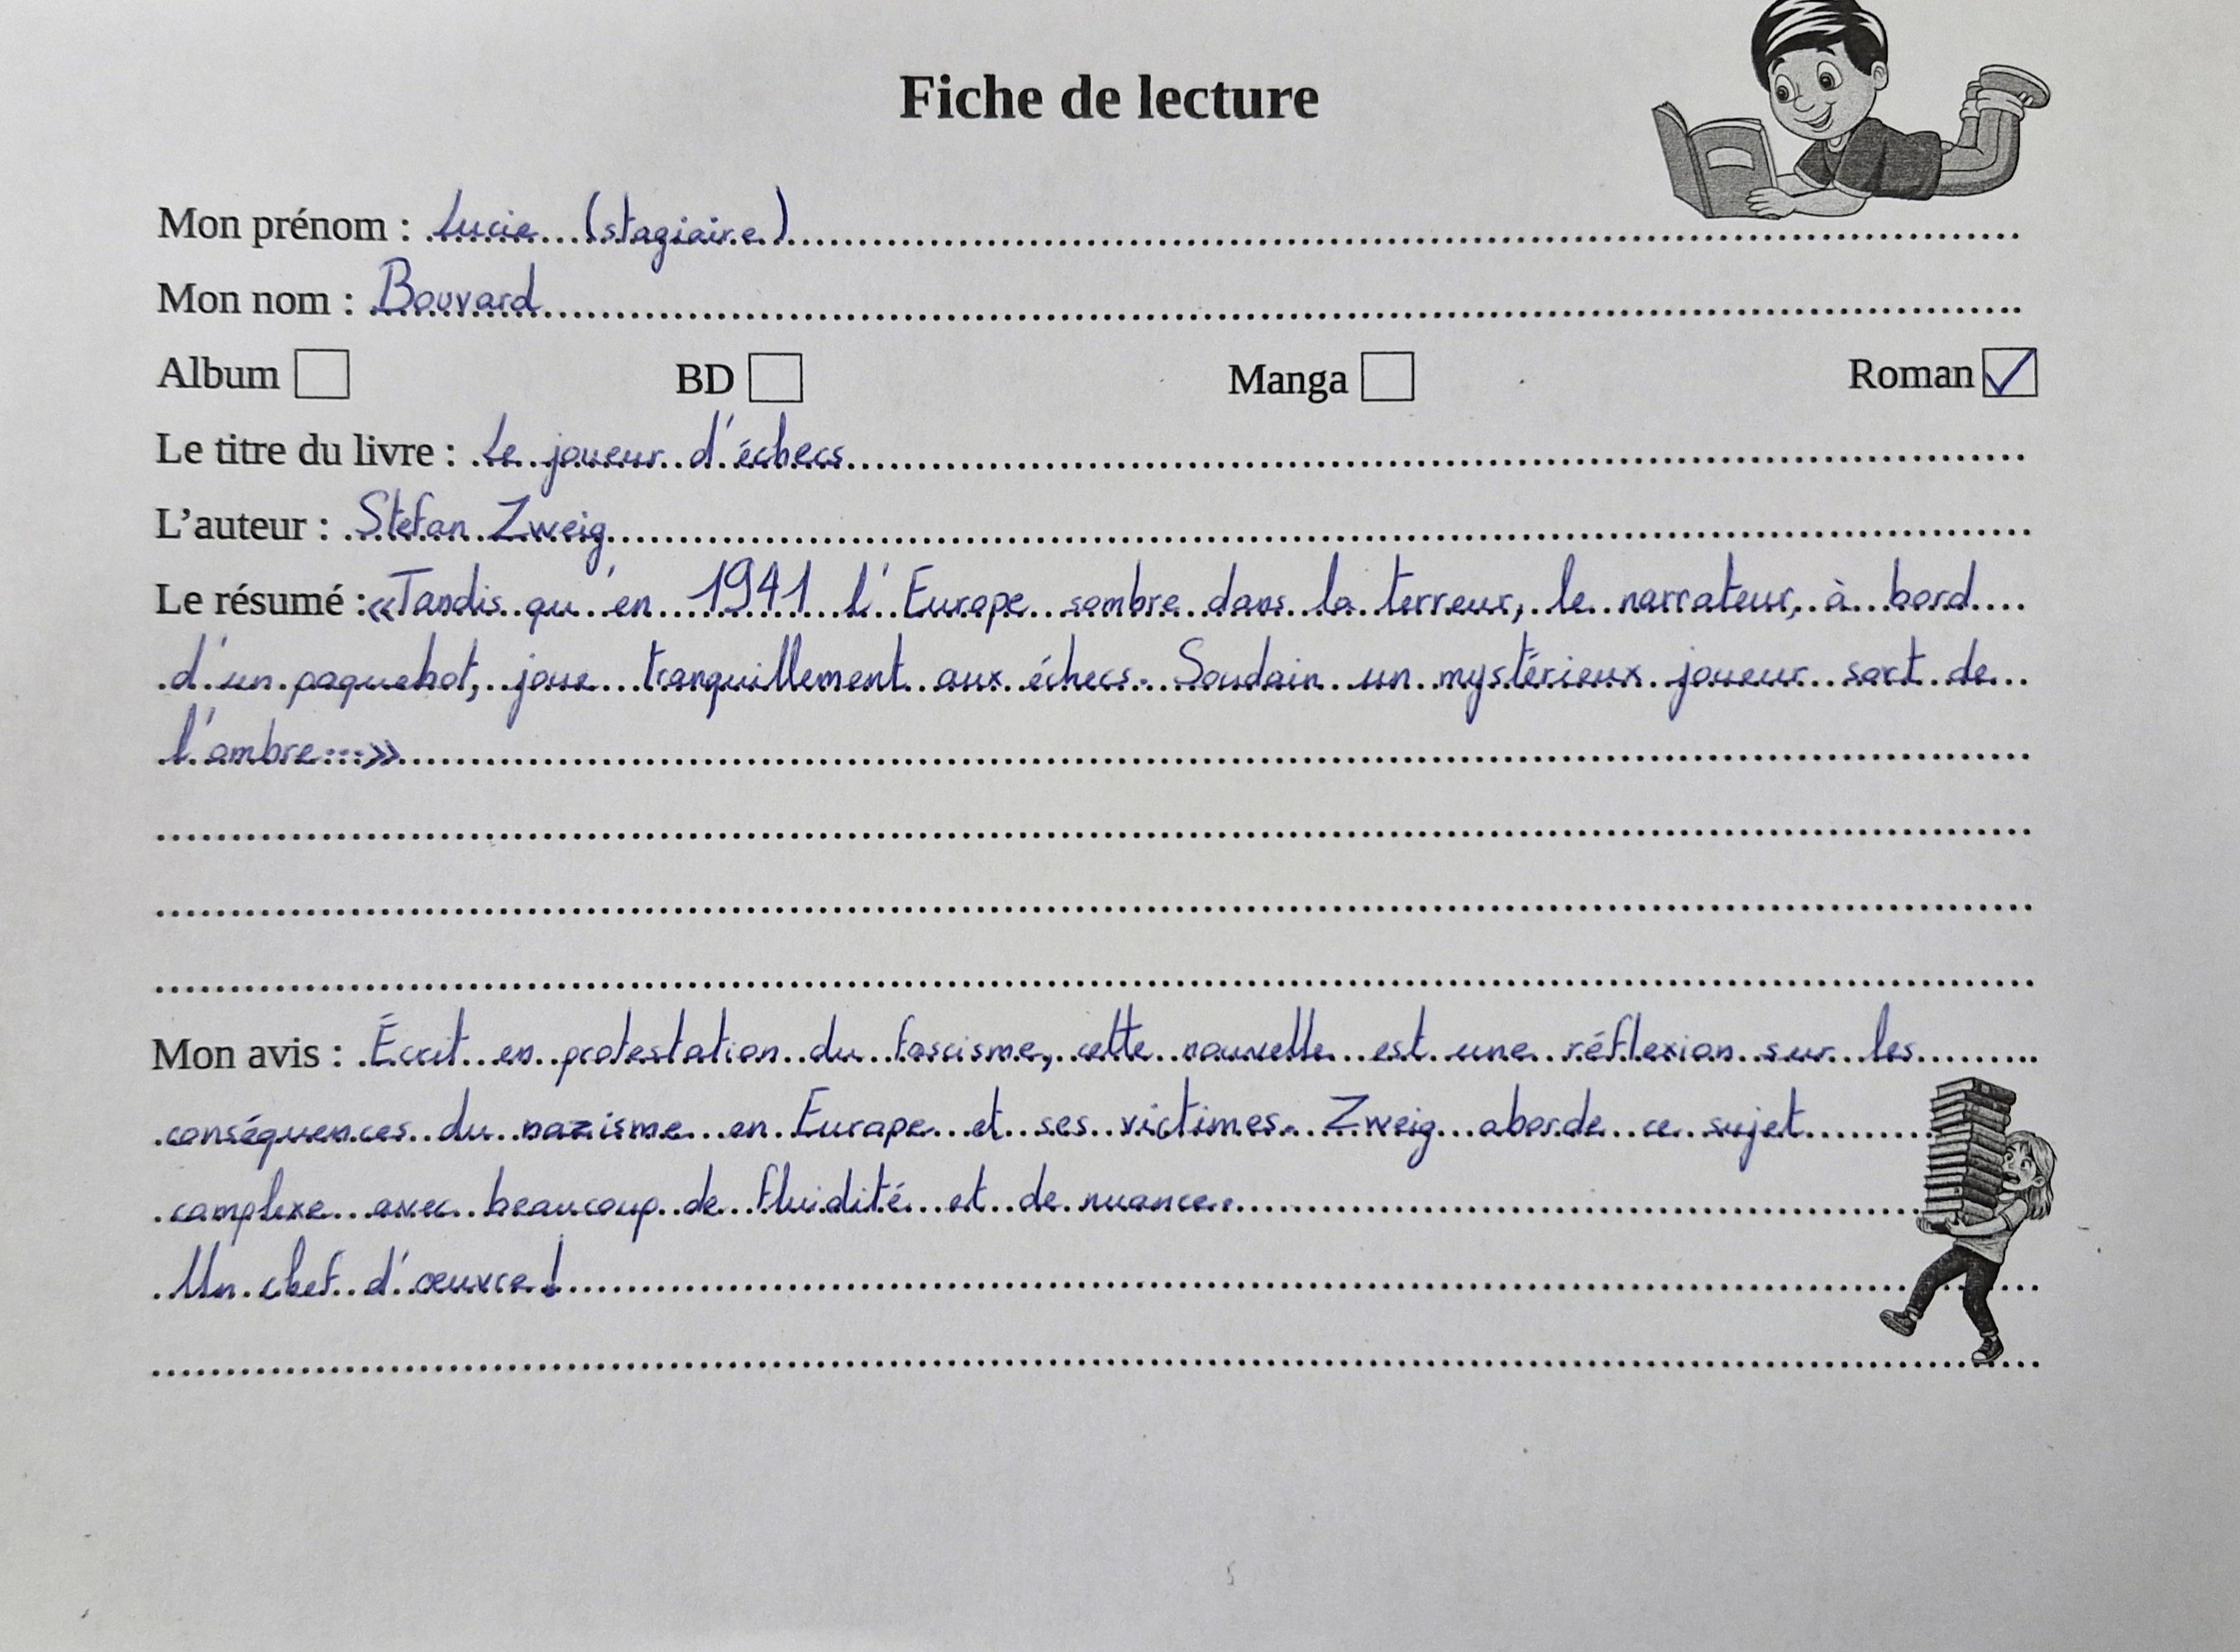 Fiche de lecture
Mon prénom : Lucie (stagiaire)
Mon nom : Bouvard
Album BD Manga Roman ✓
Le titre du livre : Le joueur d'échecs
L'auteur : Stefan Zweig
Le résumé : «Tandis qu'en 1941 l'Europe sombre dans la terreur, le narrateur, à bord
d'un paquebot, joue tranquillement aux échecs. Soudain un mystérieux joueur sort de
l'ombre...»
Mon avis : Écrit en protestation du fascisme, cette nouvelle est une réflexion sur les
conséquences du nazisme en Europe et ses victimes. Zweig aborde ce sujet
complexe avec beaucoup de fluidité et de nuance.
Un chef d'œuvre !